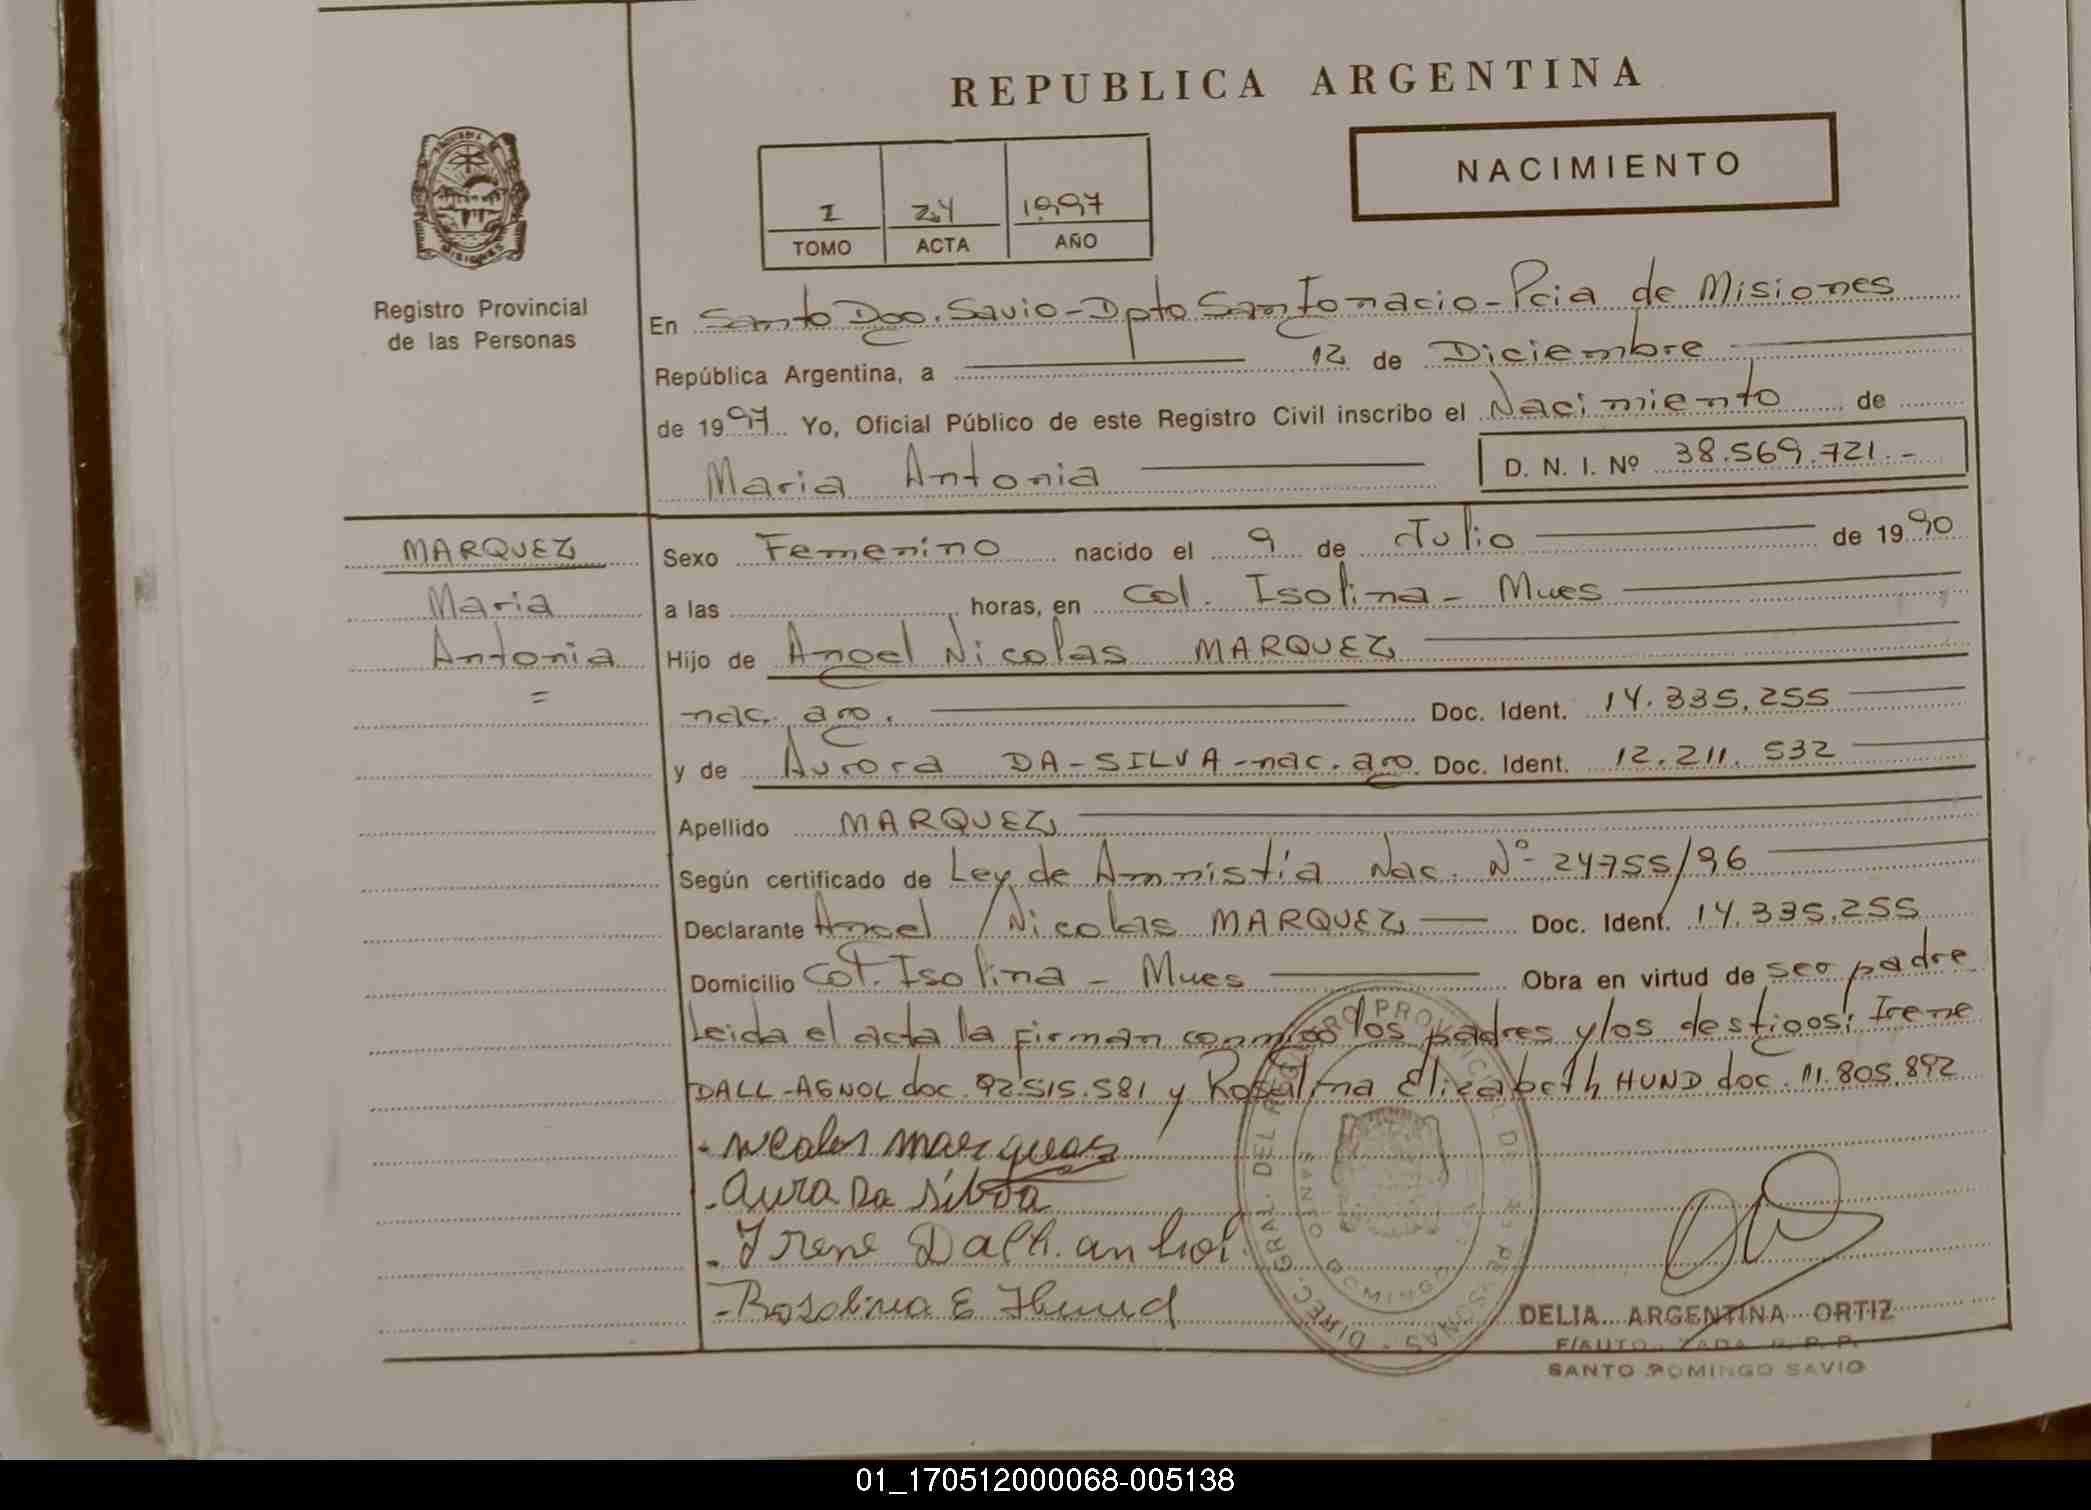 REPUBLICA ARGENTINA
NACIMIENTO
I 24 1997
TOMO ACTA AÑO
Registro Provincial
de las Personas
En Santo Dgo. Savio - Dpto San Ignacio - Pcia de Misiones
República Argentina, a 12 de Diciembre
de 1997 Yo, Oficial Público de este Registro Civil inscribo el Nacimiento de
Maria Antonia D. N. I. Nº 38.569.721.-
MARQUEZ
Maria
Antonia
=
Sexo Femenino nacido el 9 de Julio de 1990
a las horas, en Col. Isolina - Mues
Hijo de Angel Nicolas MARQUEZ
nac. arg. Doc. Ident. 14.335.255
y de Aurora DA-SILVA - nac. arg. Doc. Ident. 12.211.532
Apellido MARQUEZ
Según certificado de Ley de Amnistia Nac. Nº 24755/96
Declarante Angel Nicolas MARQUEZ Doc. Ident. 14.335.255
Domicilio Col. Isolina - Mues Obra en virtud de ser padre
Leida el acta la firman conmigo los padres y los testigos: Irene
DALL-AGNOL doc. 92.515.581 y Rosalina Elizabeth HUND doc. 11.805.892
- marques
- aura Da silva
- Irene Dall.
- Rosalina E Hund
DIREC. GRAL. DEL REGISTRO PROVINCIAL DE LAS PERSONAS
SANTO DOMINGO SAVIO
DELIA ARGENTINA ORTIZ
SANTO DOMINGO SAVIO
01_170512000068-005138